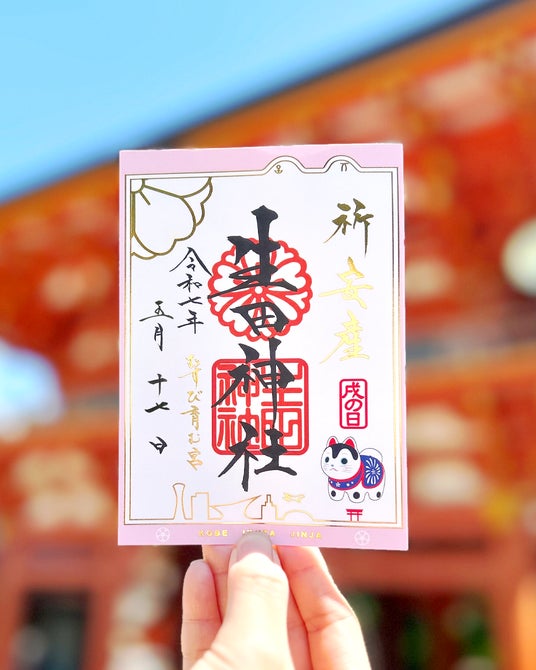 祈
安産
戌の日
生田神社
生田神社
令和七年
五月十七日
むすび育む宮
KOBE IKUTA JINJA